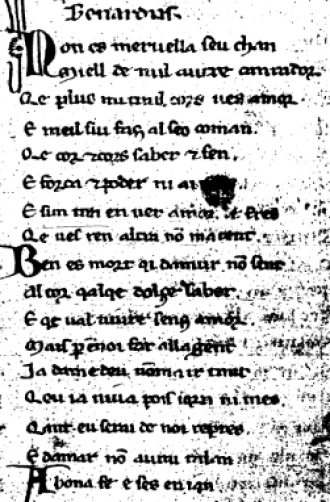 Bernardus.
Non es meruella seu chan
Myell de nul autre amador.
Qe plus mi tral cors ues amor.
E meil sui faz al seo coman.
Qe cor 7 cors saber 7 sen.
E forza 7 poder ni ai
E sim tira en uer amor
Qe ues ren alcun nō maten
Ben es mort qi damur nō sent
Al cor qalqe dolze sabor
E qe ual uiure senz amor
Mais p enoi far alla gent
Ja damedeu nōm air tant
Qeu ia uiua pois iorn ni mes
Qant eu serai de noi repres
E damar nō aurai talan
A bona fe e ses engan